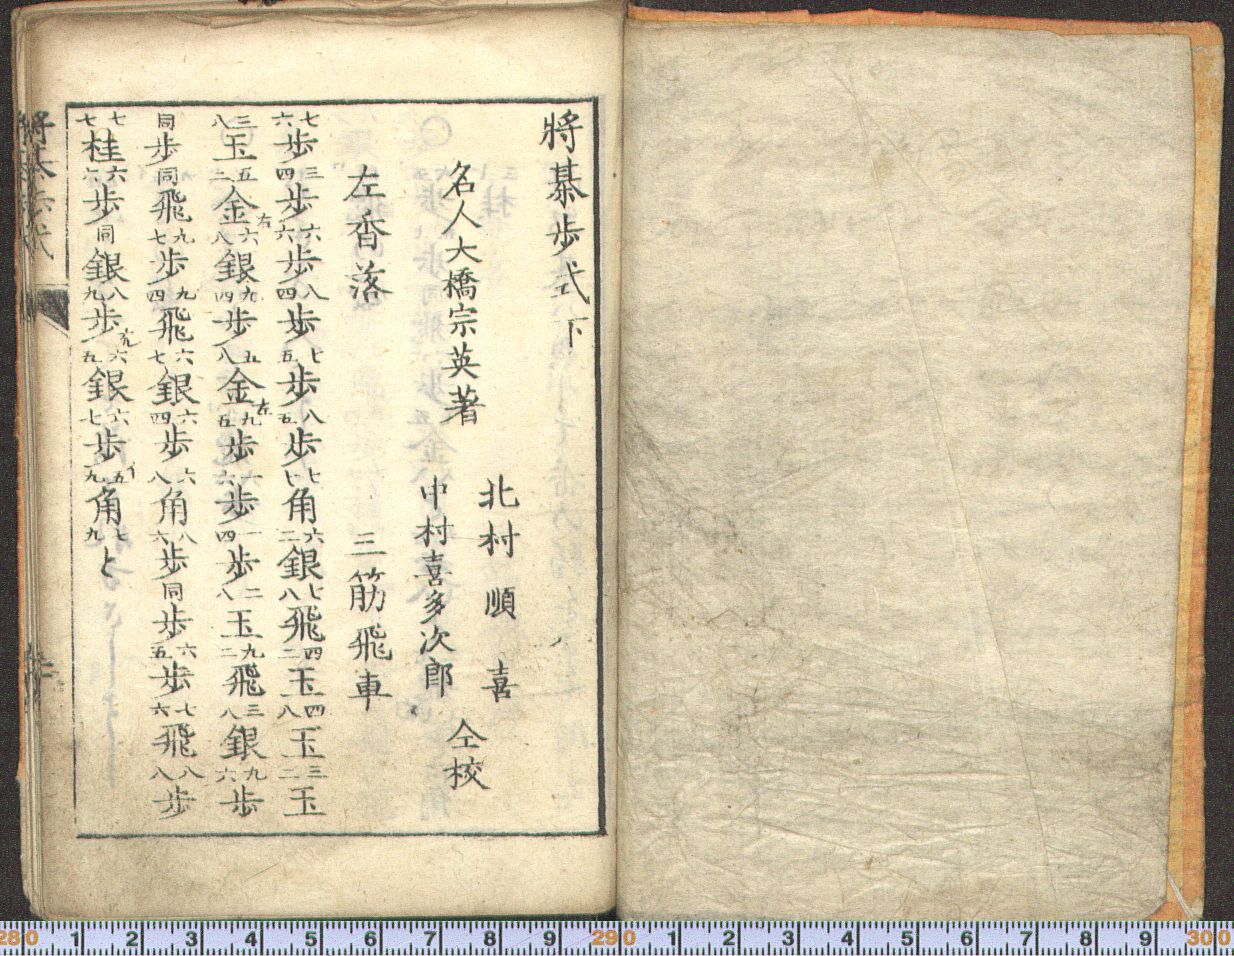 將棊歩式 下
北村順喜
名人大橋宗英著
中村喜多次郎
仝校
左香落 三筋飛車
七六歩 三四歩 六六歩 八四歩 七五歩 八五歩 七七角 六二銀 七八飛 四二玉 四八玉 三二玉
三八玉 五二金右 六八銀 九四歩 五八金左 九五歩 一六歩 一四歩 二八玉 九二飛 三八銀 九六歩
同歩 同飛 九七歩 九四飛 六七銀 六四歩 六八角 八六歩 同歩 六五歩 七六飛 八八歩
七七桂 六六歩 同銀 八九歩 六五銀 六七歩 五九角 七九と
將棊歩式
280 1 2 3 4 5 6 7 8 9 290 1 2 3 4 5 6 7 8 9 300